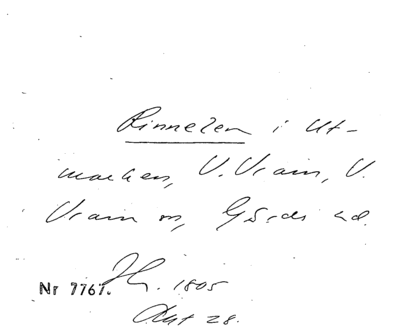 Rinnelen i Ut-
marken, V. Vram, V.
Vram sn, Gärds hd.
Nr 7767. 1805
Akt 28.